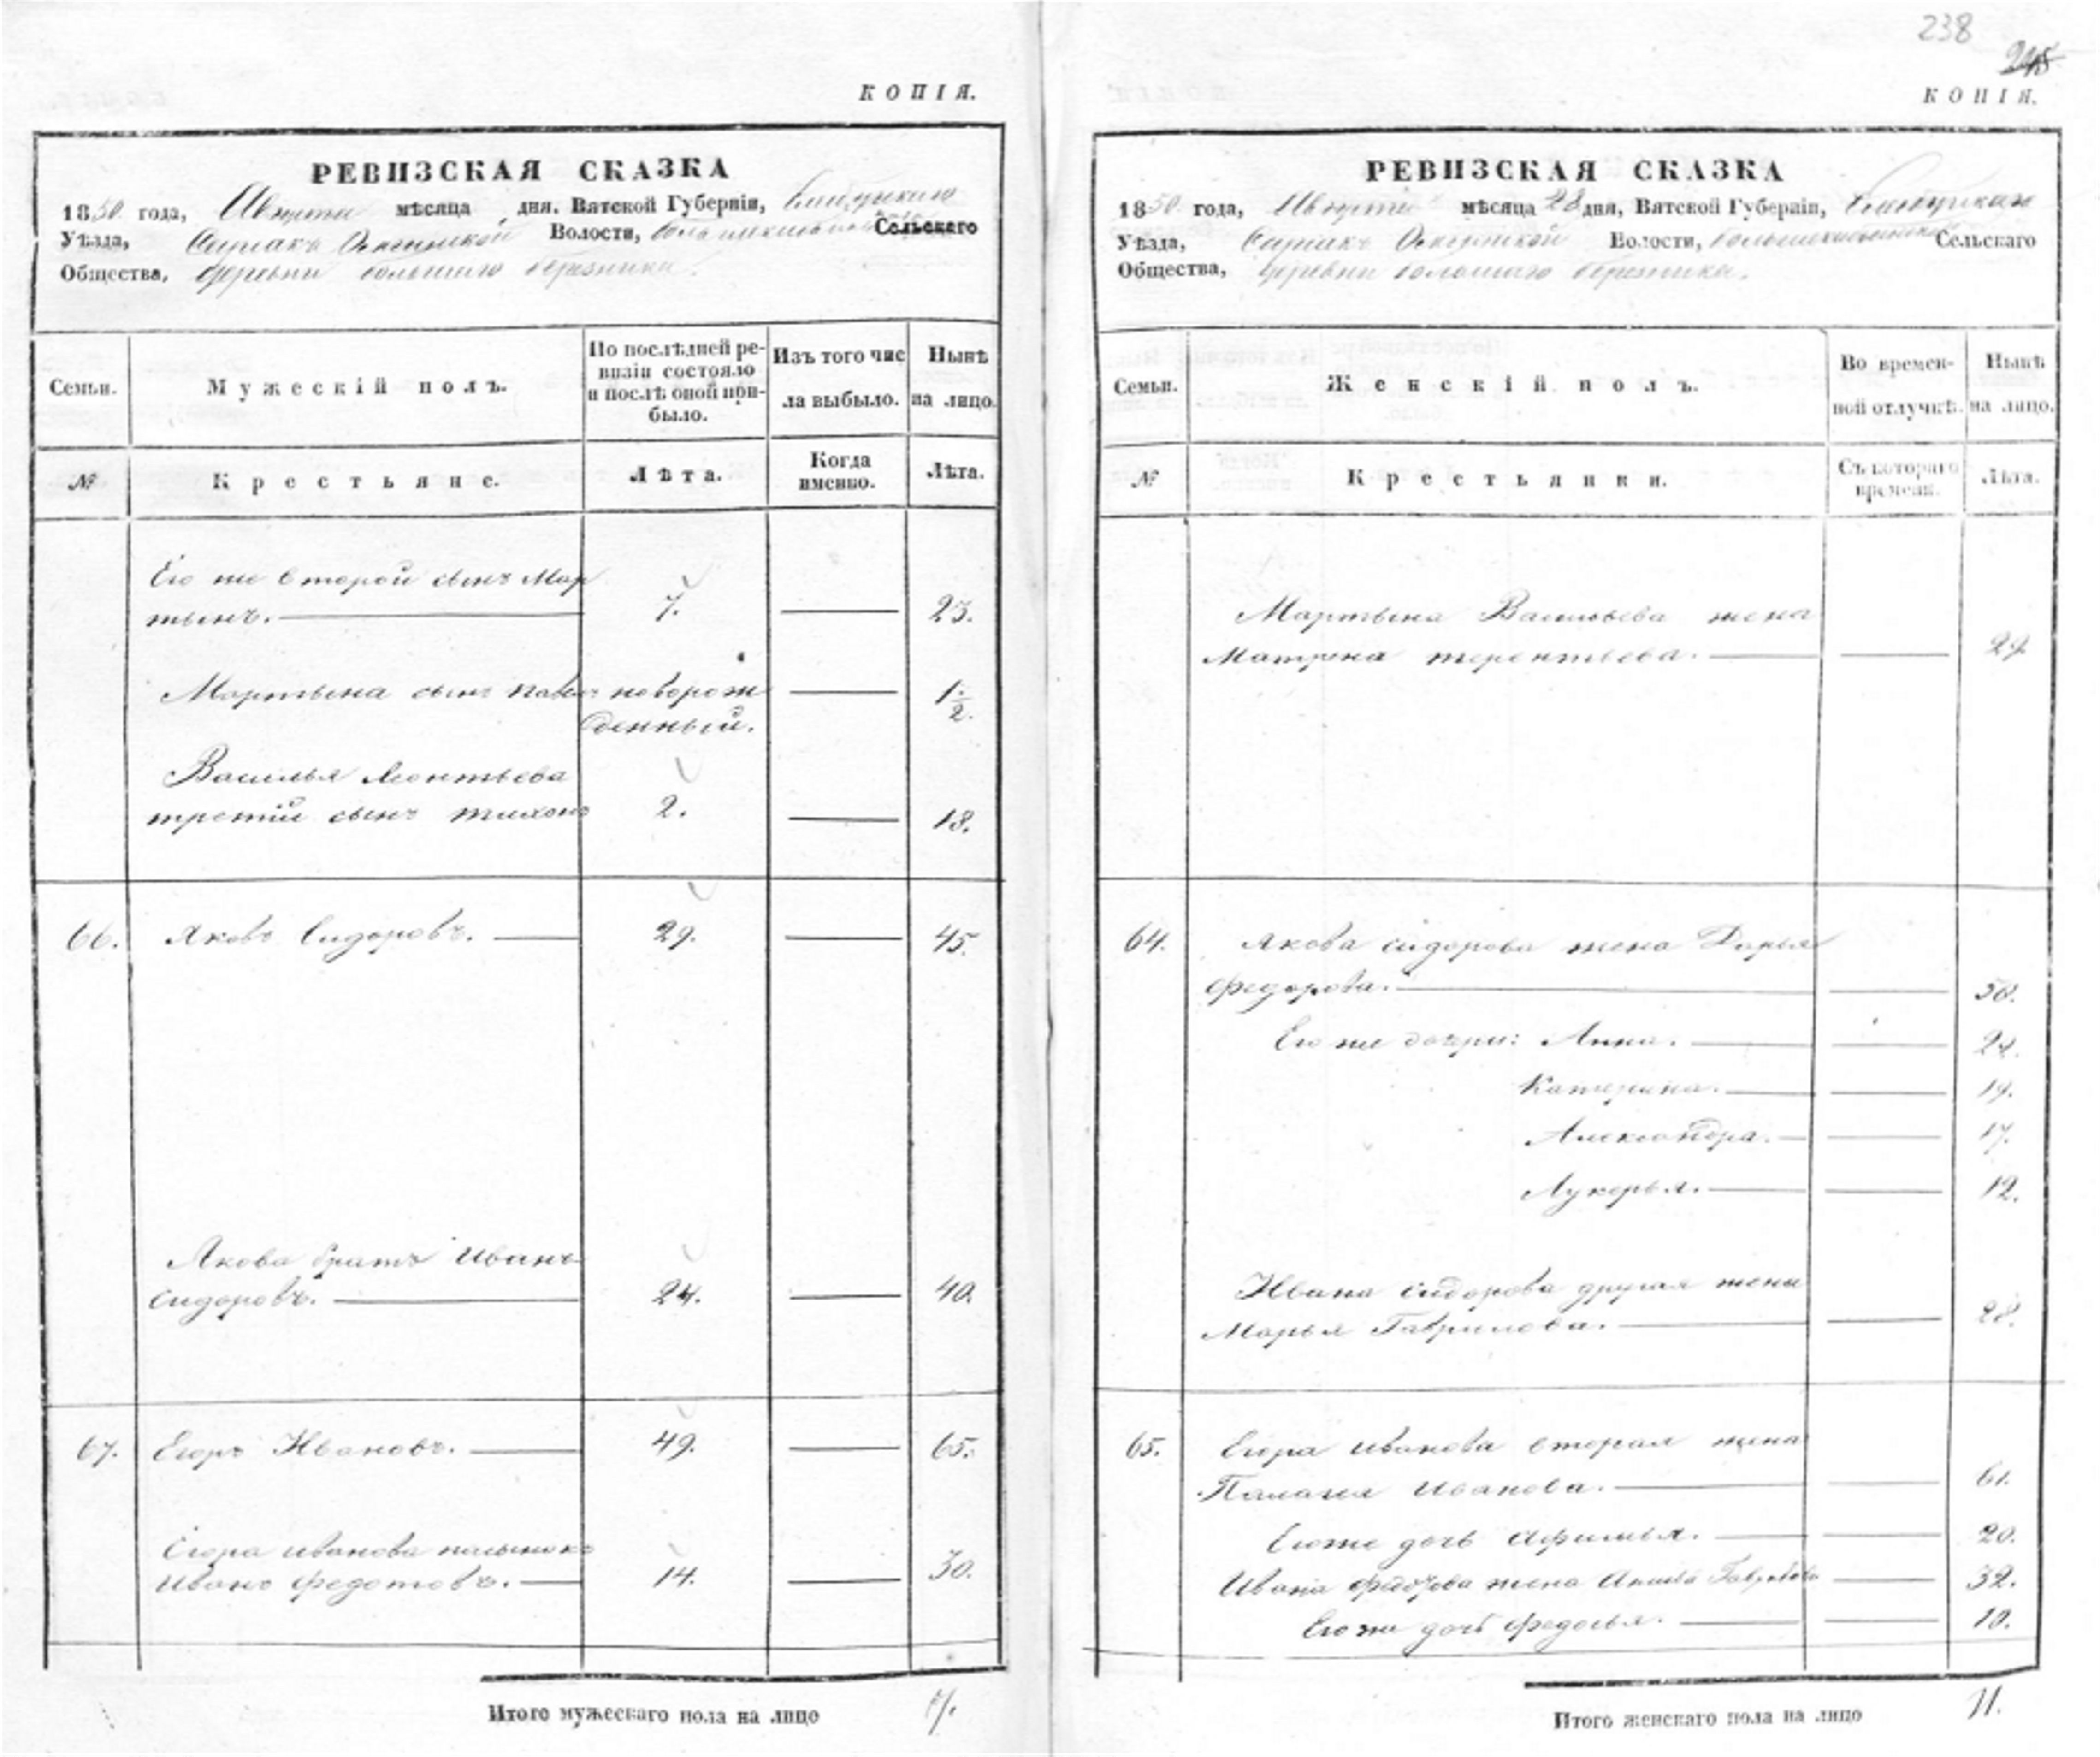 КОПІЯ.
РЕВИЗСКАЯ СКАЗКА
1850 года, Августа мѣсяца дня. Вятской Губерніи,
Уѣзда, Волости, Сельскаго
Общества, деревни большаго березника.
Семьи.
Мужескій полъ.
По послѣдней ре-
визіи состояло
и послѣ оной при-
было.
Изъ того чис
ла выбыло.
Нынѣ
на лицо.
№
Крестьяне.
Лѣта.
Когда
именно.
Лѣта.
Его же второй сынъ Мар
тынъ. 7. 23.
Мартына сынъ новорож 1 1/2.
денный.
Василья Леонтьева
третій сынъ тихонъ 2. 18.
66. Яковъ Сидоровъ. 29. 45.
Якова братъ Иванъ
Сидоровъ. 24. 40.
67. Егоръ Ивановъ. 49. 65.
Егора иванова пасынокъ
Иванъ Федотовъ. 14. 30.
Итого мужескаго пола на лицо 7.
238
КОПІЯ.
РЕВИЗСКАЯ СКАЗКА
1850 года, Августа мѣсяца 28 дня, Вятской Губерніи,
Уѣзда, Волости, Сельскаго
Общества, деревни большаго березника.
Семьи.
Женскій полъ.
Во времен-
ной отлучкѣ.
Нынѣ
на лицо.
№
Крестьянки.
Съ котораго
времени.
Лѣта.
Мартына Васильева жена
Матрена терентьева.
64. Якова сидорова жена Дарья
федорова.
Его же дочри: Анна.
Катерина. 19.
Александра. 17.
Лукерья. 12.
Ивана сидорова другая жена
Марья Гаврилова. 28.
65. Егора иванова вторая жена
Палагея иванова. 61.
Егоже дочь афимья. 20.
Ивана жена 32.
Его же дочь федосья. 10.
Итого женскаго пола на лицо 11.